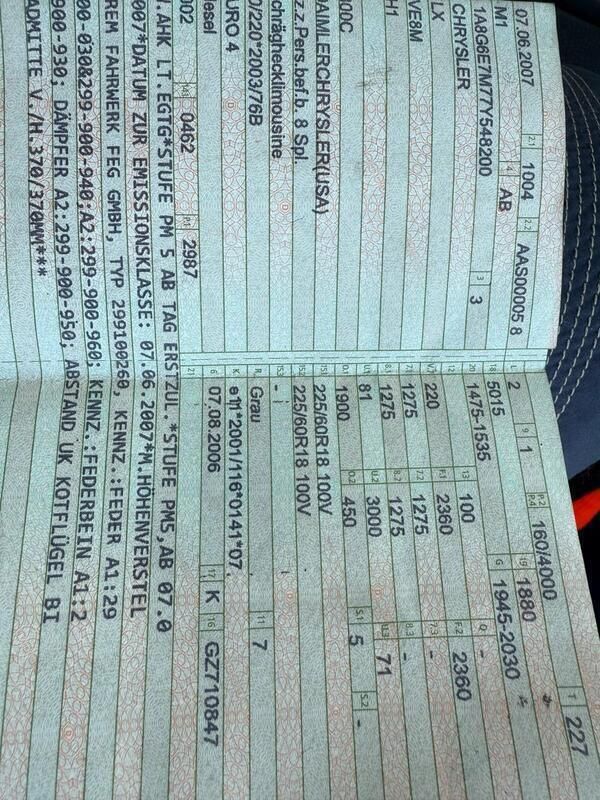 07.06.2007 2.1 1004 2.2 AAS00005 8
M1 4 AB
1A8G6E7M77Y548200 3 3
CHRYSLER
LX
VE9M
H1
300C
DAIMLERCHRYSLER(USA)
z.z.Pers.bef.b. 8 Spl.
Schräghecklimousine
0/220*2003/76B
EURO 4
Diesel
0002 14.1 0462 P.1 2987
L 2 9 1 P.2 P.4 160/4000 T 227
18 5015 19 1880
20 1475-1535 G 1945-2030
12 - 13 100 Q -
V.7 220 F.1 2360 F.2 2360
7.1 1275 7.2 1275 7.3 -
8.1 1275 8.2 1275 8.3 -
U.1 81 U.2 3000 U.3 71
O.1 1900 O.2 450 S.1 5 S.2 -
15.1 225/60R18 100V
15.2 225/60R18 100V
15.3 -
R Grau 11 7
K e11*2001/116*0141*07
6 07.08.2006 17 K 16 GZ710847
21
M.AHK LT.EGTG*STUFE PM 5 AB TAG ERSTZUL.*STUFE PM5,AB 07.0
007*DATUM ZUR EMISSIONSKLASSE: 07.06.2007*M.HÖHENVERSTEL
REM FAHRWERK FEG GMBH, TYP 299100260, KENNZ.:FEDER A1:29
00-030&299-900-940;A2:299-900-960; KENNZ.:FEDERBEIN A1:2
900-930; DÄMPFER A2:299-900-950; ABSTAND UK KOTFLÜGEL BI
ADMITTE V./H.370/370MM***